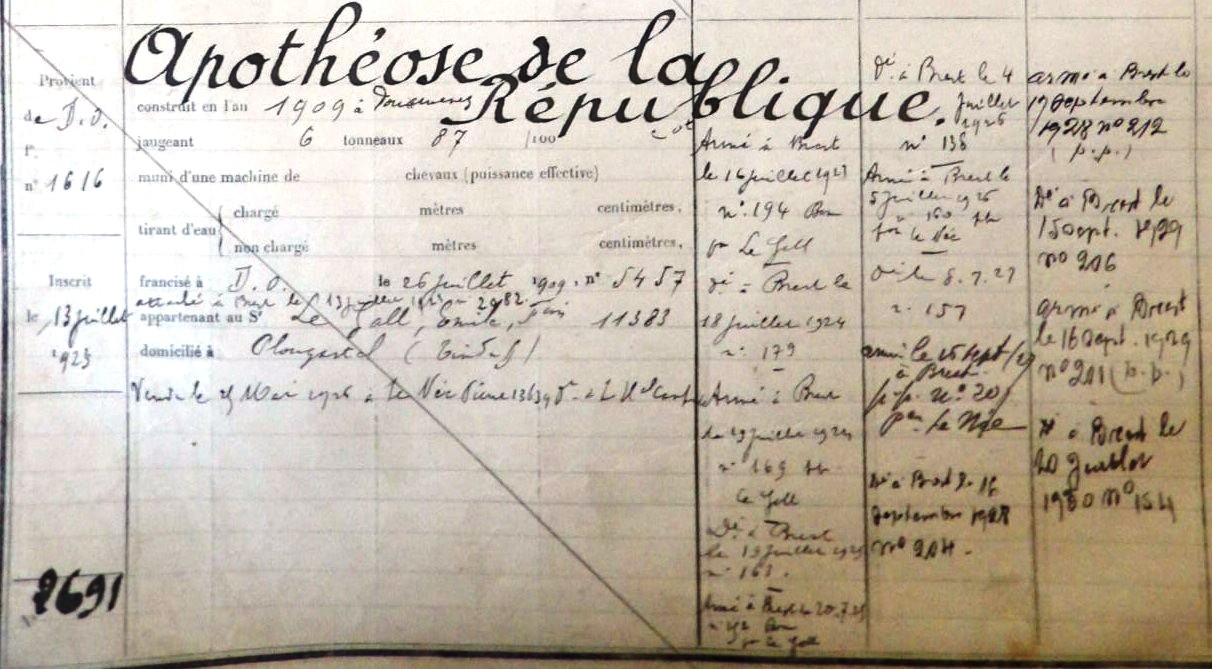 Apothéose de la
République.
Provient
de D.O.
f°
n° 1616
Inscrit
le 13 juillet
1923
2691
construit en l'an 1909 à
jaugeant 6 tonneaux 87 /100
muni d'une machine de chevaux (puissance effective)
tirant d'eau
chargé mètres centimètres.
non chargé mètres centimètres.
francisé à D.O. le 26 juillet 1909, n° 5457
attaché à Brest le 13 juillet 2982
appartenant au Sr Le Gall, 11383
domicilié à Plougastel
Vendu le 29 Mai 1926 à Le Née Pierre
Armé à Brest
le 16 juillet 1923
n° 194
pr Le Gall
Dé à Brest le
18 juillet 1924
n° 179
Armé à Brest
le 19 juillet 1924
n° 169
Le Gall
Dé à Brest
le 19 juillet 1925
n° 163.
Armé à Brest le 20.7.25
Le Gall
Dé à Brest le 4
juillet
1926
n° 138
Armé à Brest le
5 juillet 1926
n° 160
par le Née
8.7.27
n. 157
armé le 16 sept/27
à Brest
p.p. n° 201
par Le Née
Dé à Brest le 16
septembre 1928
n° 204.
armé à Brest le
17 septembre
1928 n° 212
(p.p.)
Dé à Brest le
15 sept. 1929
n° 206
armé à Brest
le 16 sept. 1929
n° 201 (p.p.)
Dé à Brest le
20 juillet
1930 n° 154